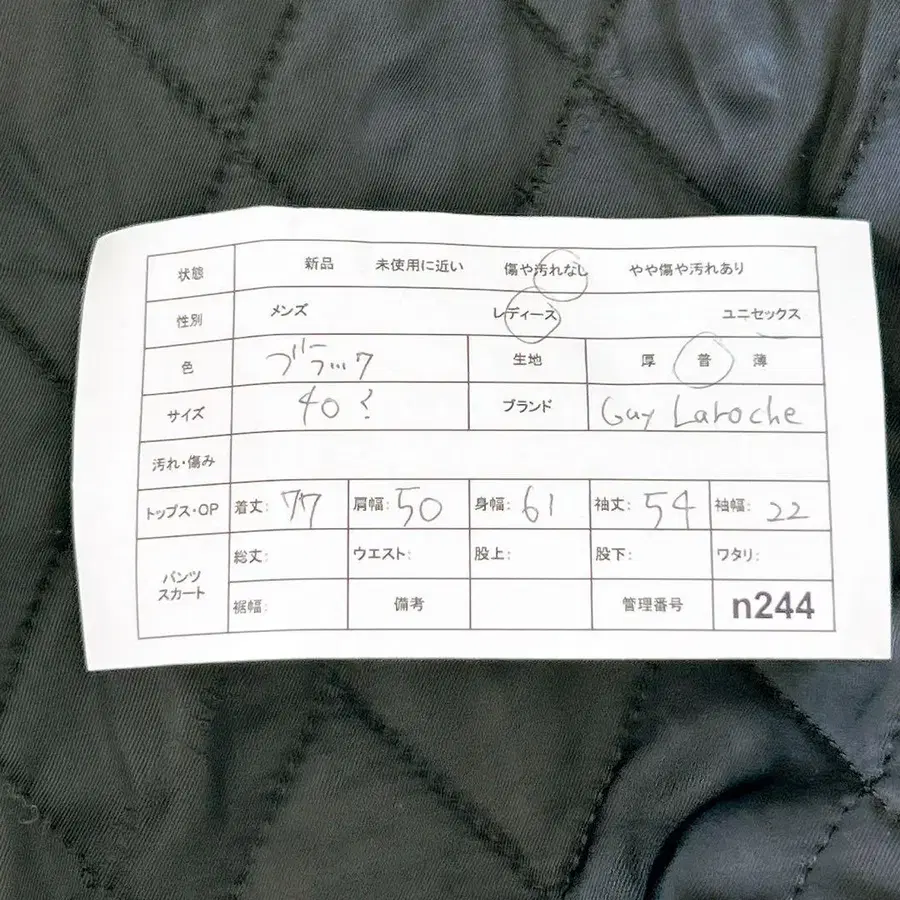 状態 新品 未使用に近い 傷や汚れなし やや傷や汚れあり
性別 メンズ レディース ユニセックス
色 ブラック 生地 厚 普 薄
サイズ 40? ブランド Guy Laroche
汚れ・傷み
トップス・OP 着丈: 77 肩幅: 50 身幅: 61 袖丈: 54 袖幅: 22
パンツ スカート 総丈: ウエスト: 股上: 股下: ワタリ:
裾幅: 備考 管理番号 n244